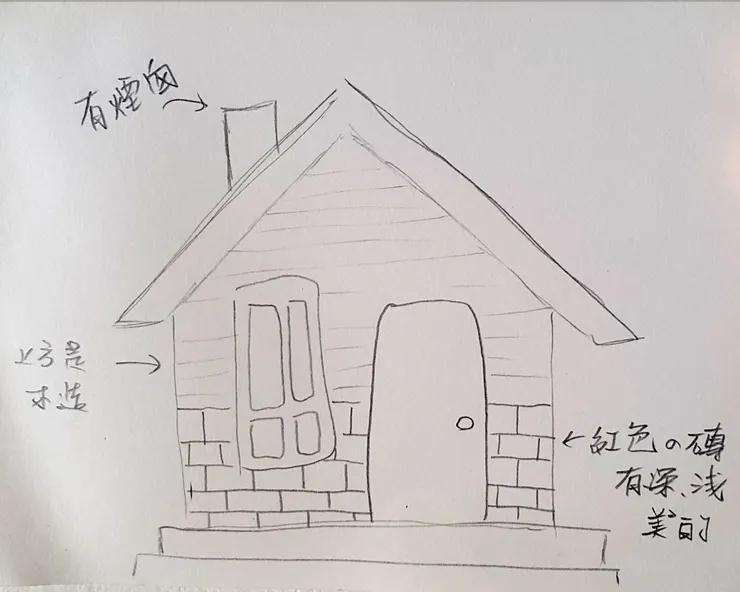 有煙囪
上方是
木造
紅色の磚
有深、浅
美的